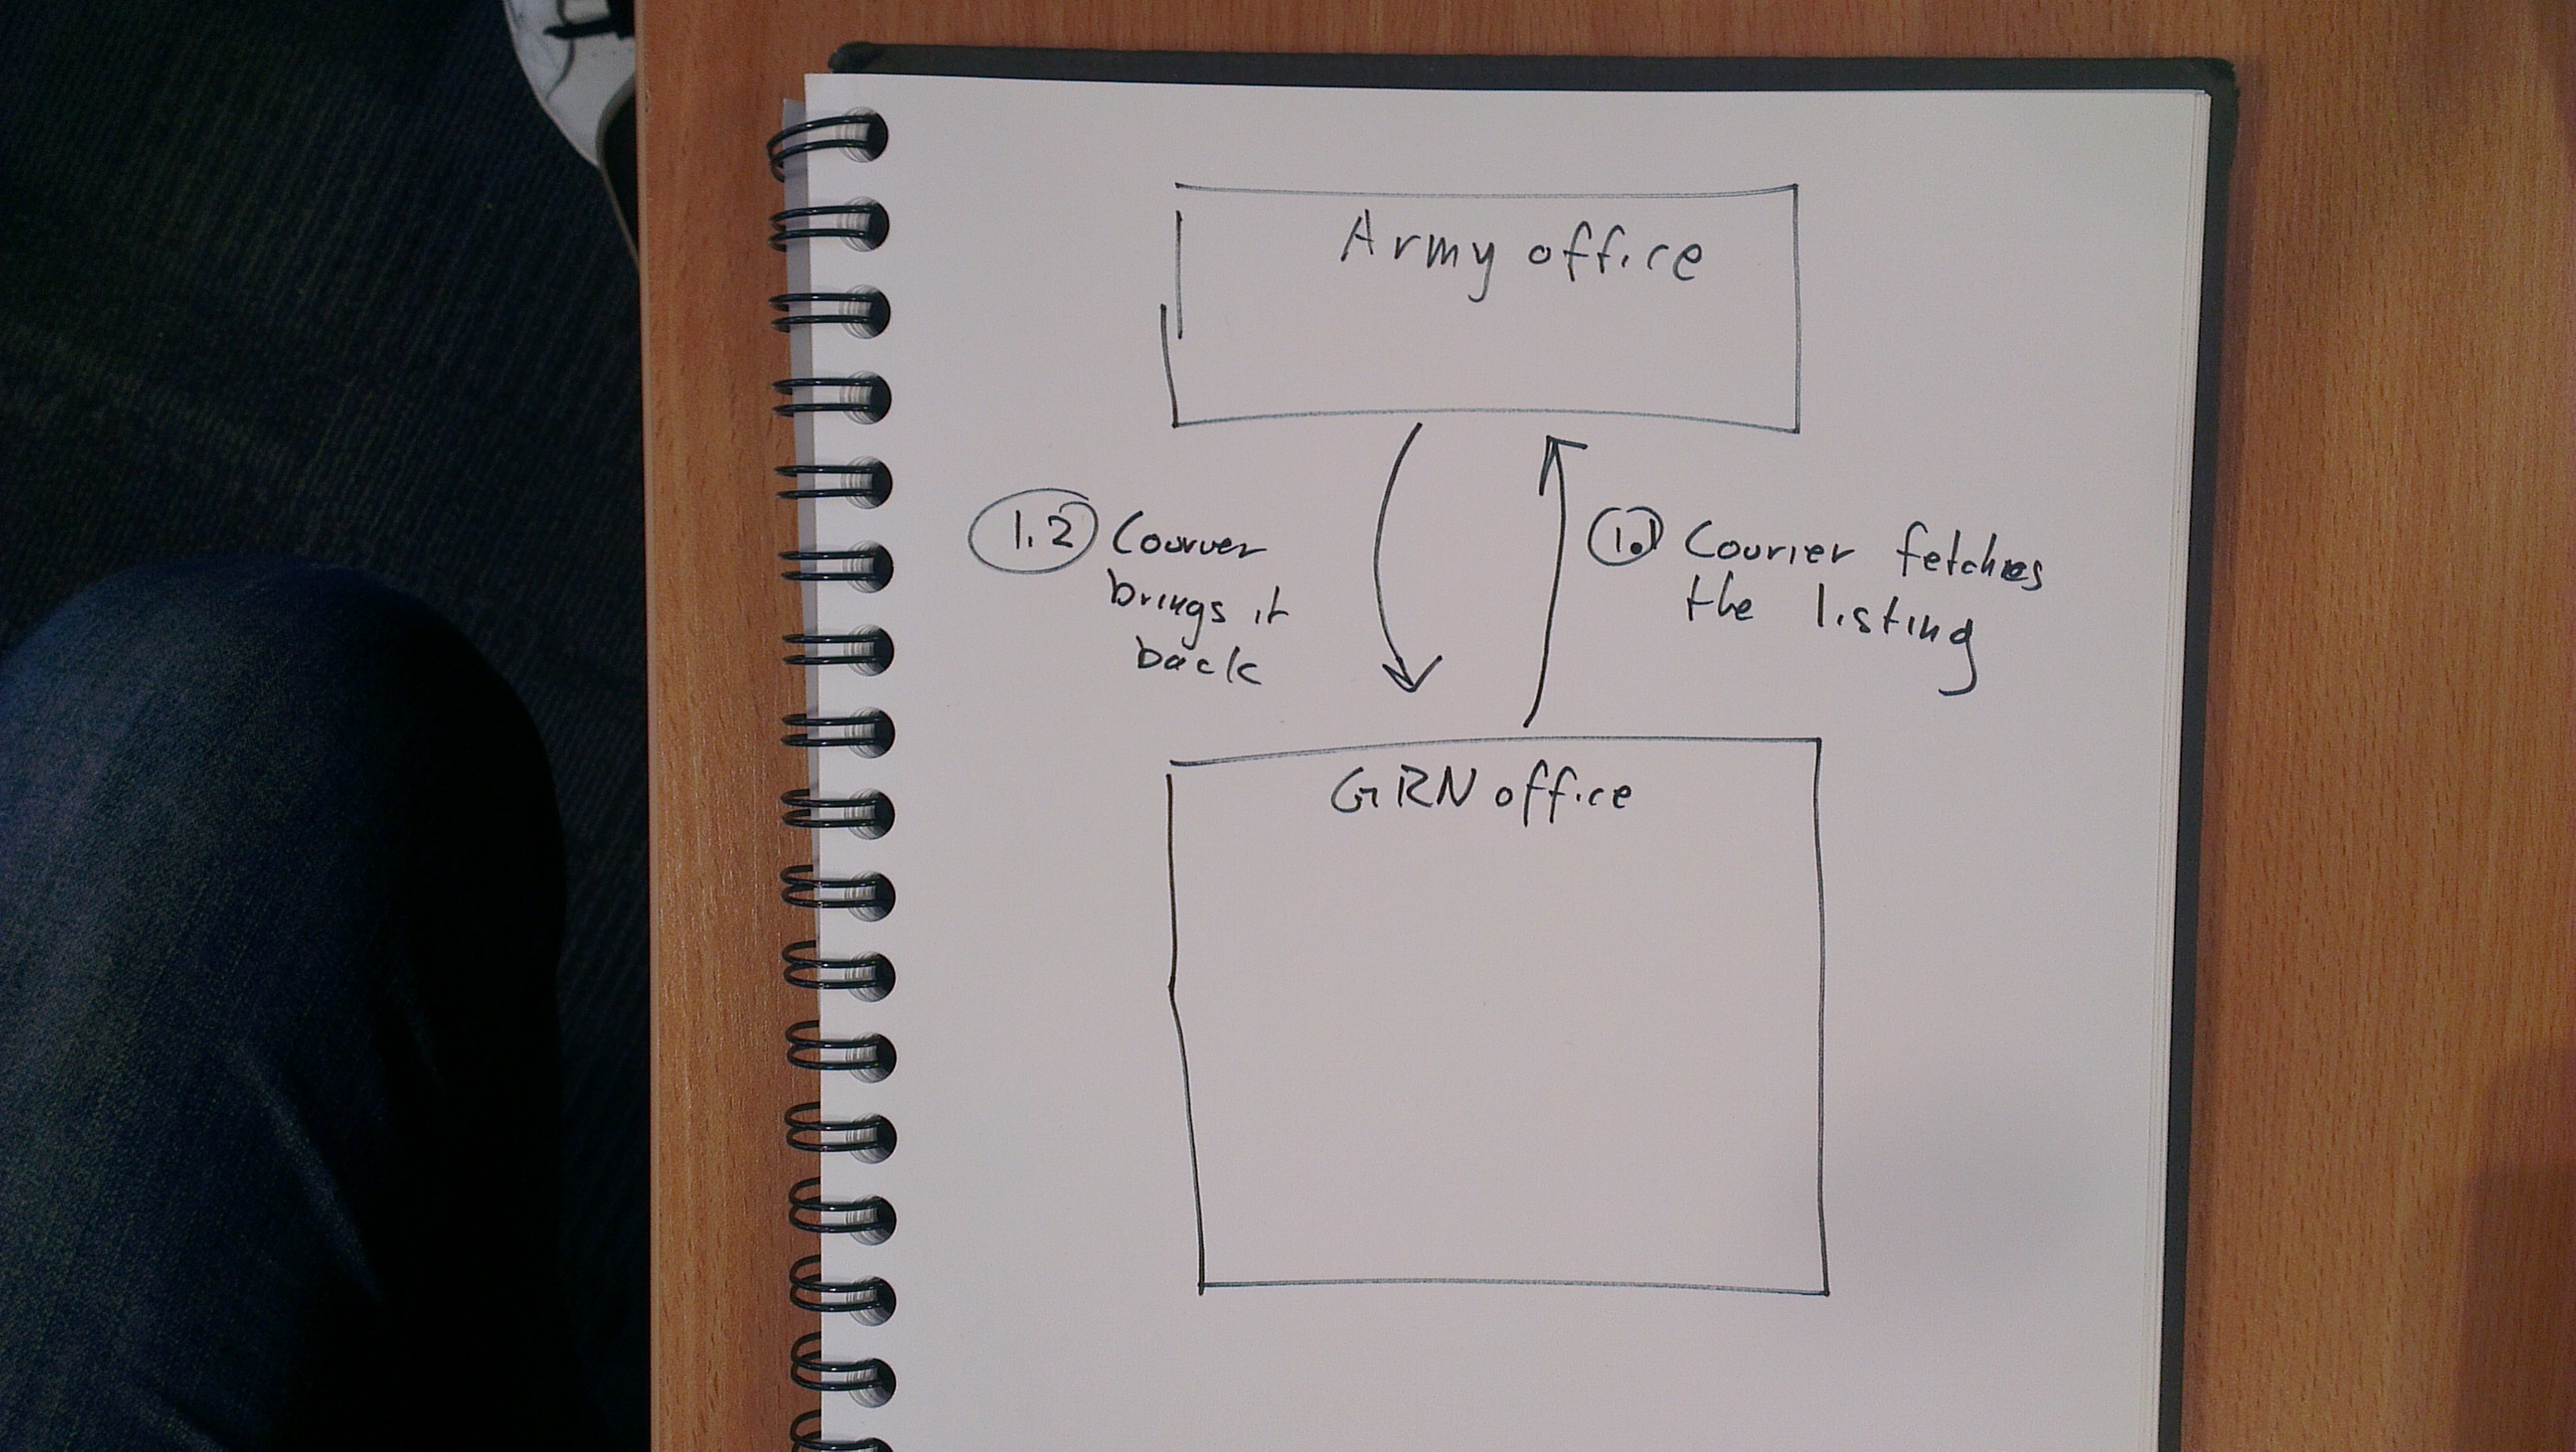 Army office
1.2 Courier
brings it
back
1.1 Courier fetches
the listing
GRN office